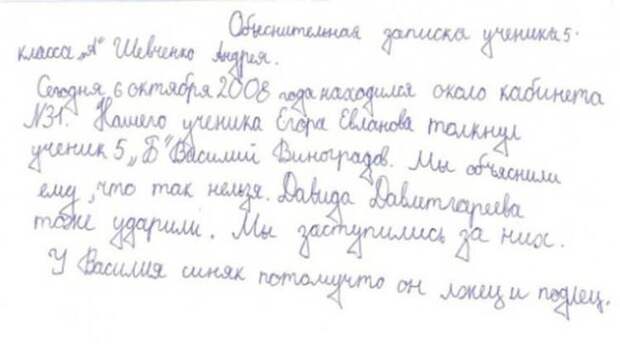 Обьеснительная записка ученика 5.
класса „А" Шевченко Андрея.
Сегодня 6 октября 2008 года находился около кабинета
N31. Нашего ученика Егора Евланова толкнул
ученик 5 „Б" Василий Виноградов. Мы объяснили
ему, что так нельзя. Давида Давитгареева
тоже ударили. Мы заступились за них.
У Василия синяк потомучто он лжец и подлец.